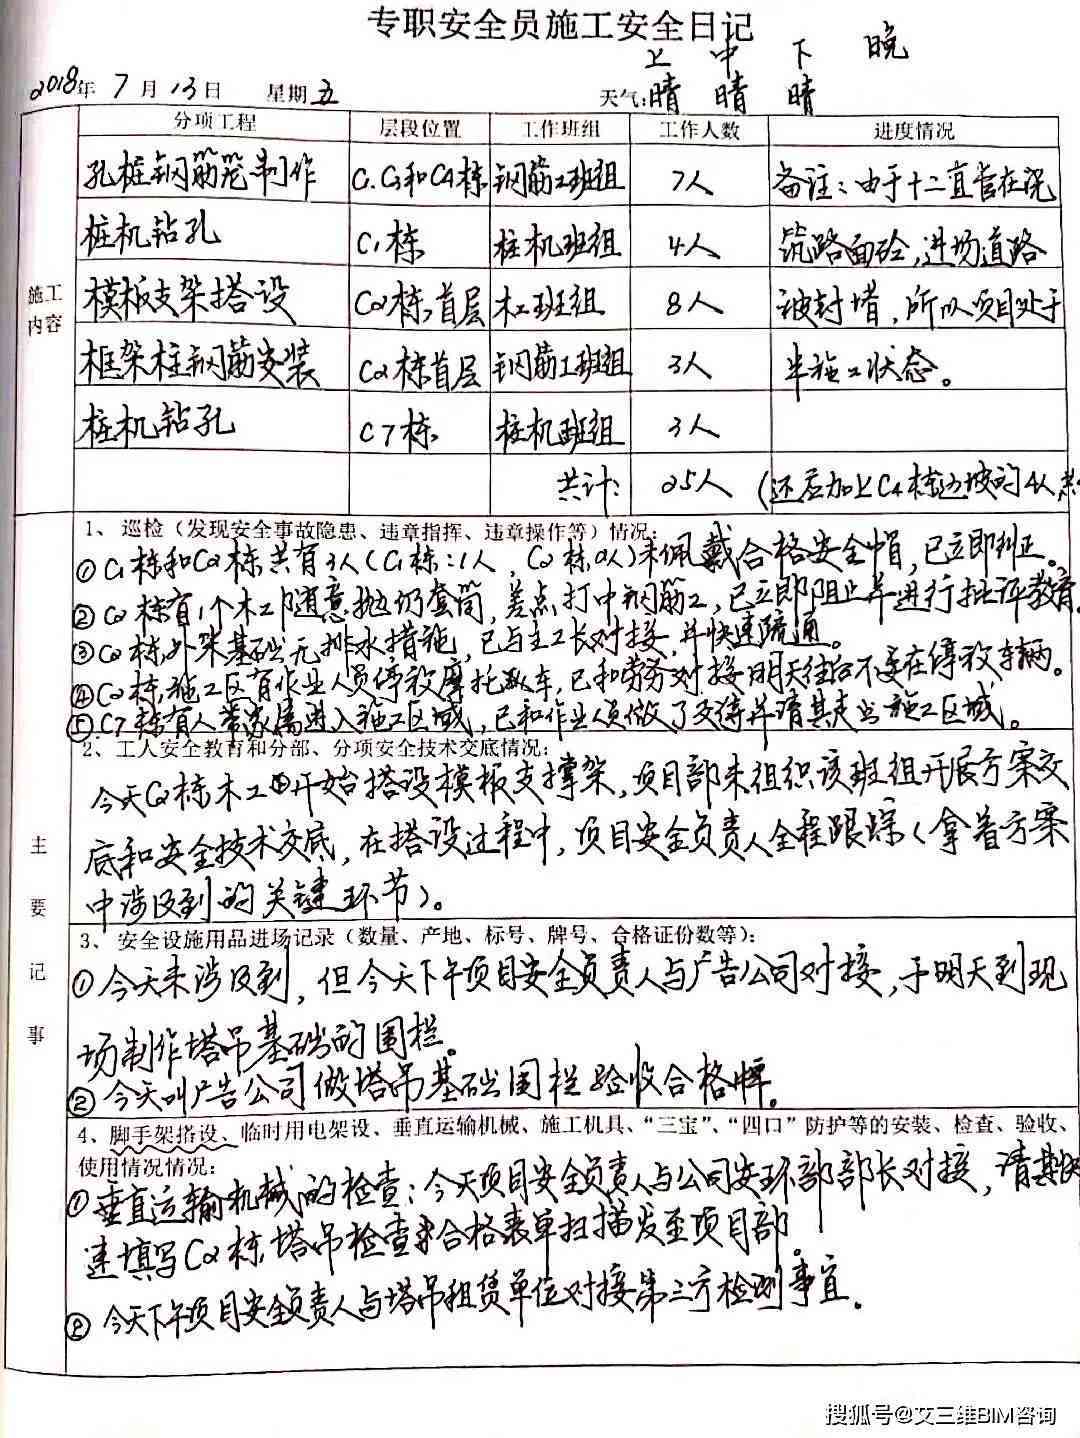 专职安全员施工安全日记
上 中 下 晚
2018年 7 月 13 日 星期 五 天气: 晴 晴 晴
分项工程 层段位置 工作班组 工作人数 进度情况
施工内容
孔桩钢筋笼制作 C1、C3和C4栋 钢筋工班组 7人 备注：由于十二直管在浇
桩机钻孔 C1栋 桩机班组 4人 筑路面砼，进场道路
模板支架搭设 C2栋，首层 木工班组 8人 被封堵，所以项目处于
框架柱钢筋安装 C2栋首层 钢筋工班组 3人 半施工状态。
桩机钻孔 C7栋 桩机班组 3人
共计: 25人 (还应加上C4栋边坡的4人
主要记事
1、巡检（发现安全事故隐患、违章指挥、违章操作等）情况:
①C1栋和C2栋共有3人（C1栋：1人，C2栋2人）未佩戴合格安全帽，已立即纠正。
②C2栋有1个木工随意抛扔套筒，差点打中钢筋工，已立即阻止并进行批评教育
③C2栋，外架基础无排水措施，已与主工长对接，并快速疏通。
④C2栋，施工区有作业人员停放摩托车，已和劳务对接明天往后不要在停放车辆。
⑤C7栋有人带家属进入施工区域，已和作业人员做了交待并请其走出施工区域。
2、工人安全教育和分部、分项安全技术交底情况:
今天C2栋木工开始搭设模板支撑架，项目部未组织该班组开展方案交
底和安全技术交底，在搭设过程中，项目安全负责人全程跟踪（拿着方案
中涉及到的关键环节）。
3、安全设施用品进场记录（数量、产地、标号、牌号、合格证份数等）:
①今天未涉及到，但今天下午项目安全负责人与广告公司对接，于明天到现
场制作塔吊基础的围栏。
②今天叫广告公司做塔吊基础围栏验收合格牌。
4、脚手架搭设、临时用电架设、垂直运输机械、施工机具、“三宝”、“四口”防护等的安装、检查、验收、
使用情况情况:
①垂直运输机械的检查：今天项目安全负责人与公司安环部部长对接，请其快
速填写C2栋，塔吊检查合格表单扫描发至项目部。
②今天下午项目安全负责人与塔吊租赁单位对接第三方检测事宜。
搜狐号@艾三维BIM咨询